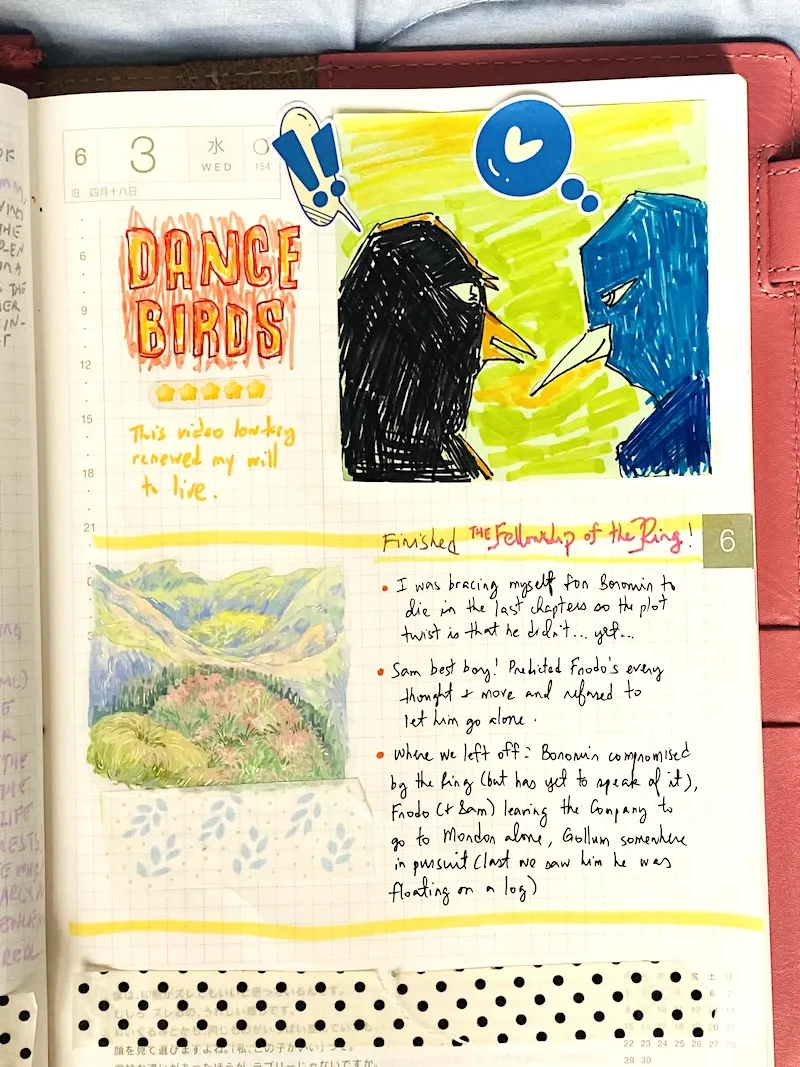 6
3
水
WED
154
旧 四月十八日
6
9
12
15
18
21
0
3
DANCE
BIRDS
This video low-key
renewed my will
to live.
Finished THE Fellowship of the Ring!
6
• I was bracing myself for Boromir to
die in the last chapters so the plot
twist is that he didn't... yet...
• Sam best boy! Predicted Frodo's every
thought + move and refused to
let him go alone.
• Where we left off: Boromir compromised
by the Ring (but has yet to speak of it),
Frodo (+ Sam) leaving the Company to
go to Mordor alone, Gollum somewhere
in pursuit (last we saw him he was
floating on a log)
むしろ、ズレるの、うれしい感じです。
顔を見て選びますよね。「私、この子がいい」って。
土 日
6 7
22 23 24 25 26 27 28
29 30